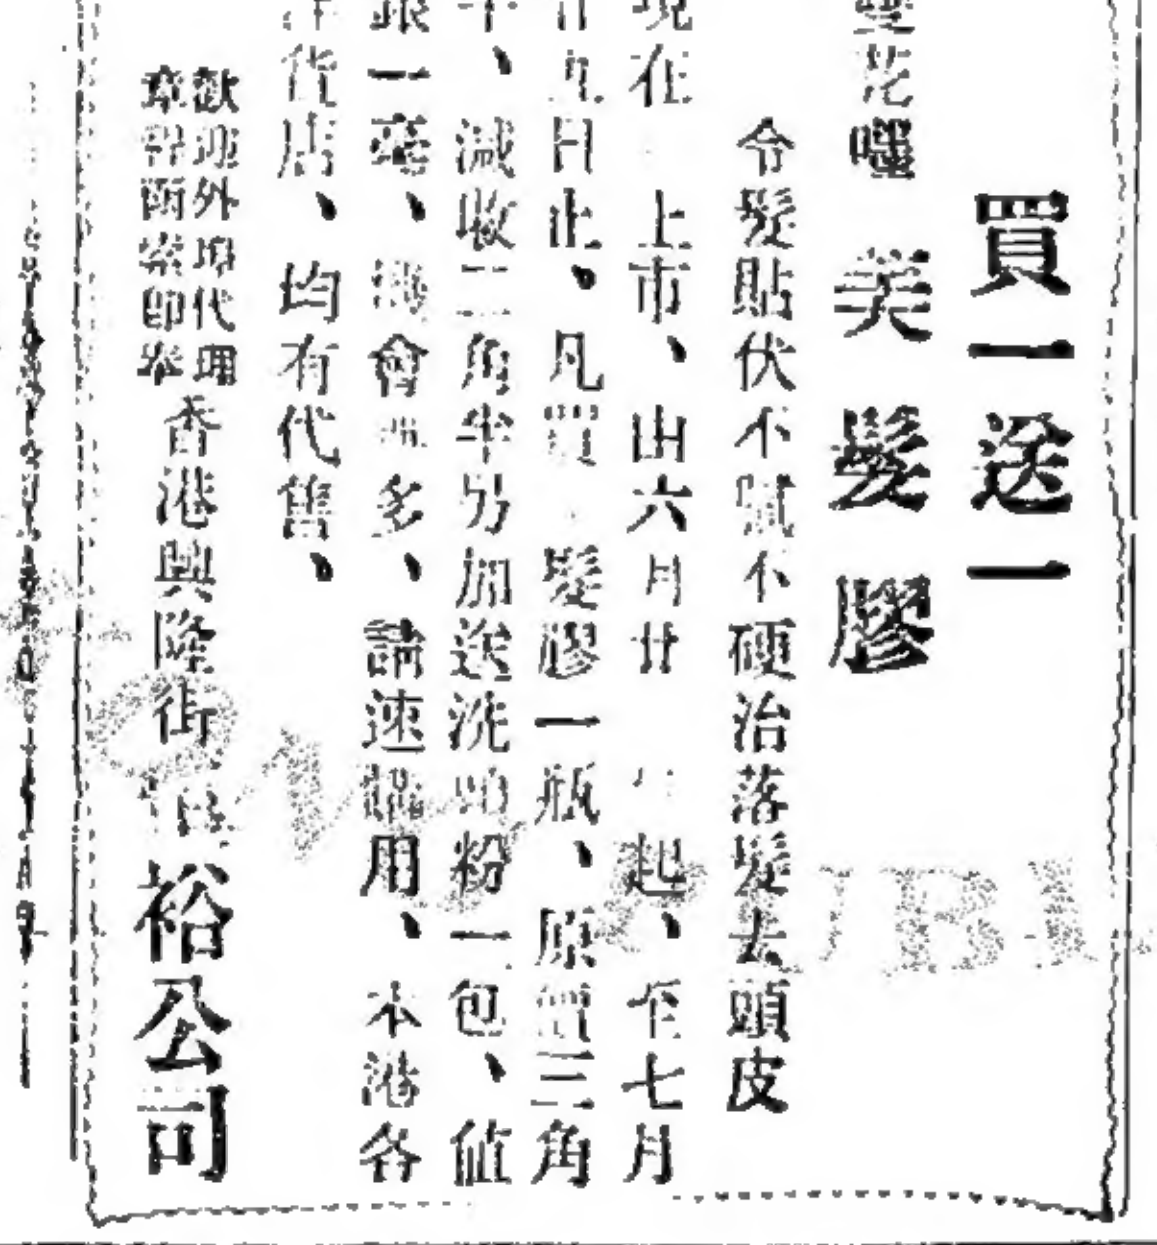 買一送一
花嘿 美髮膠
令髮貼伏不膩不硬治落髮去頭皮
現在 上市、由六月廿 起、至七月
廿九日止、凡買 髮膠一瓶、原價三角
半、減收二角半另加送洗頭粉一包、值
銀一毫、機會無多、請速購用、本港各
洋貨店、均有代售、
歡迎外埠代理
章程函索即奉
香港興隆街 裕公司